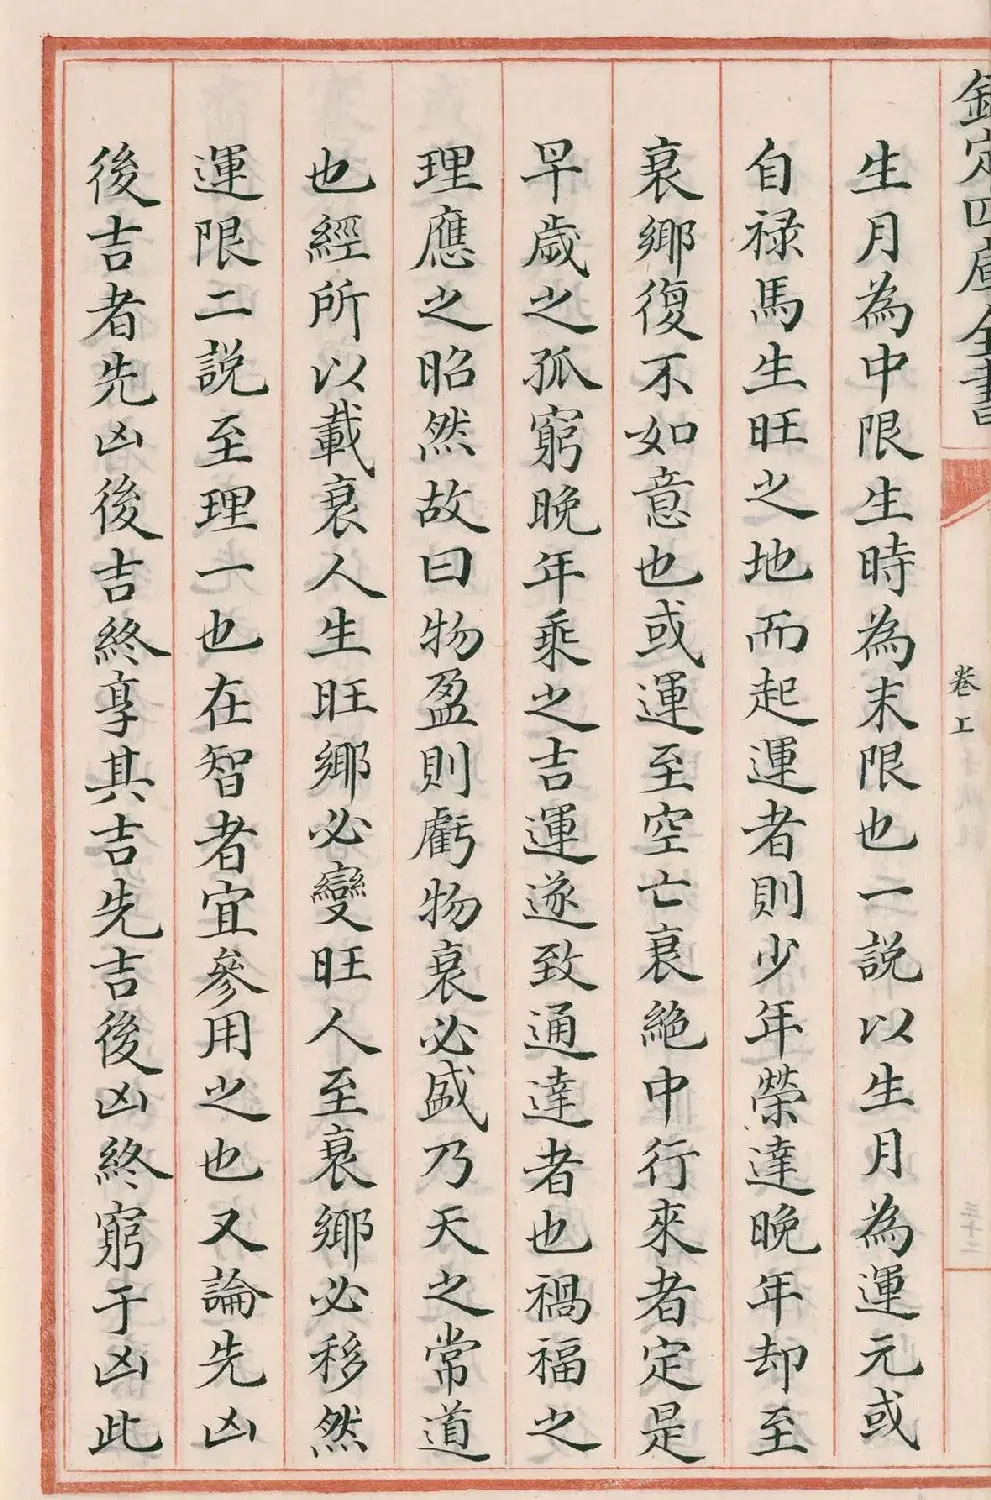 欽定四庫全書
卷上
生月為中限生時為末限也一説以生月為運元或
自禄馬生旺之地而起運者則少年榮達晚年却至
衰鄉復不如意也或運至空亡衰絶中行來者定是
早歲之孤窮晚年乘之吉運遂致通達者也禍福之
理應之昭然故曰物盈則虧物衰必盛乃天之常道
也經所以載衰人生旺鄉必變旺人至衰鄉必移然
運限二説至理一也在智者宜參用之也又論先凶
後吉者先凶後吉終享其吉先吉後凶終窮于凶此